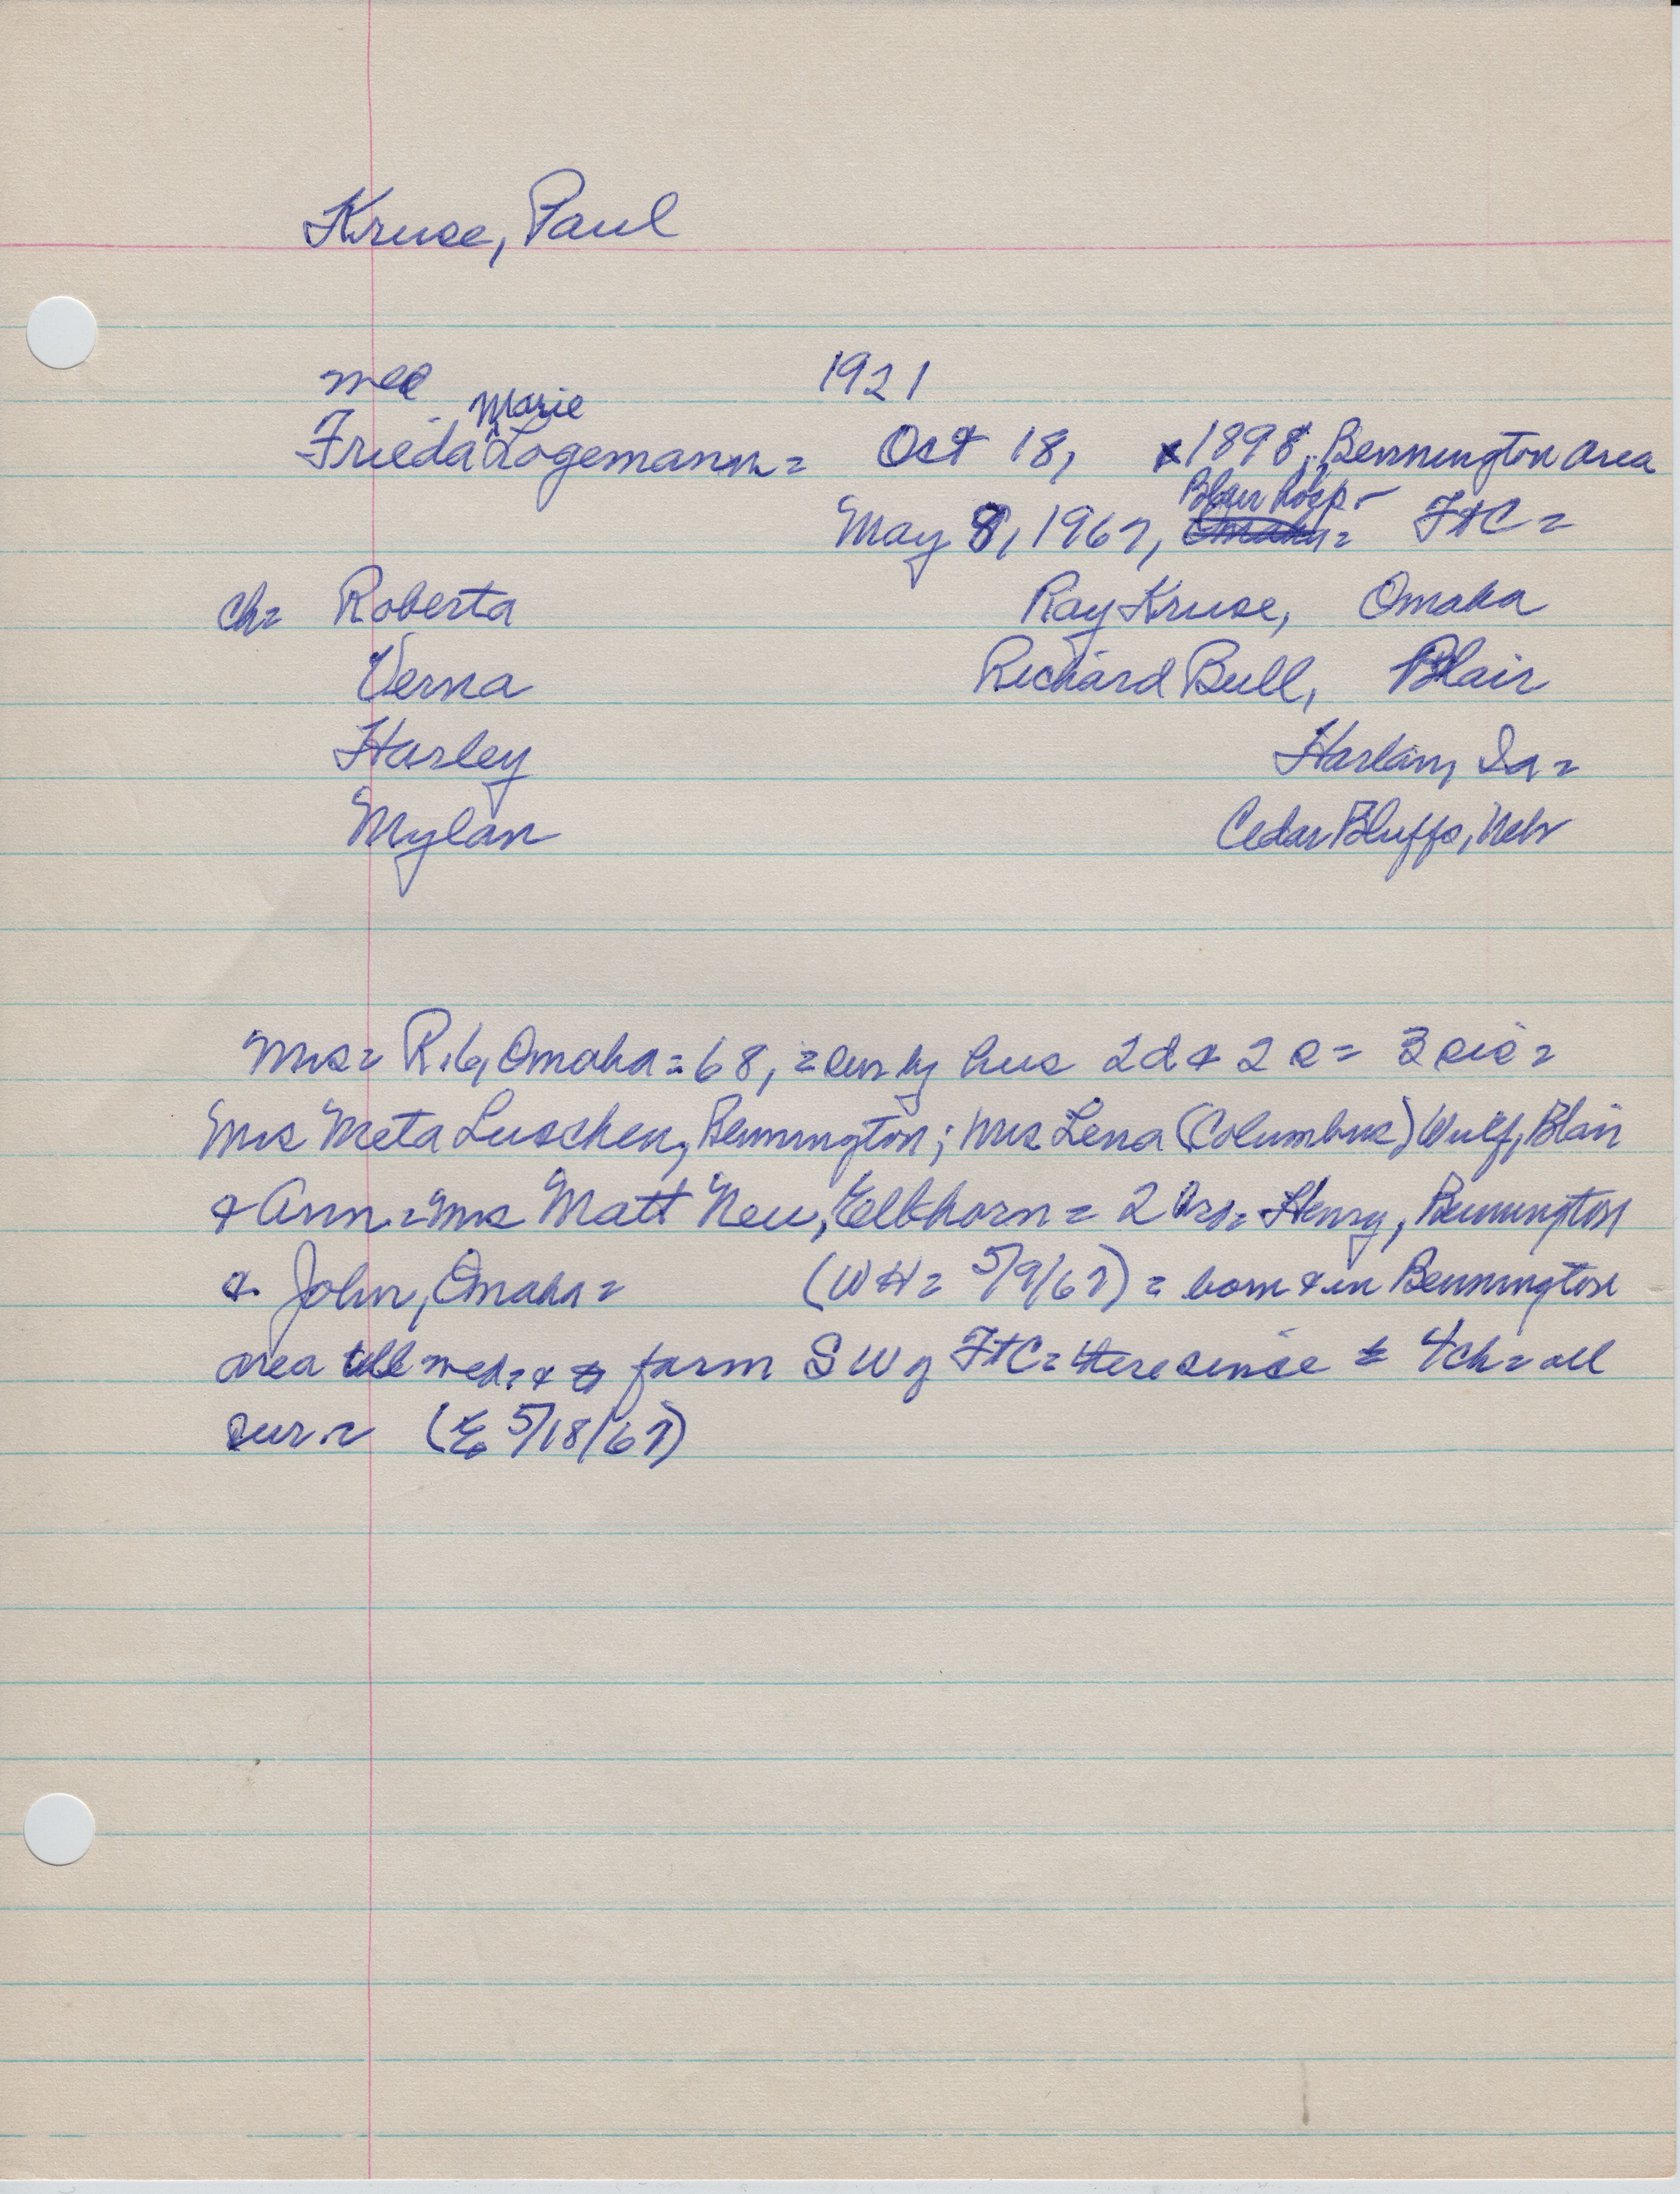 Kruse, Paul
med 1921
Marie
Frieda Logemann = Oct 18, 1898, Bennington area
Blair hosp -
May 8, 1967, Omaha = FtC =
ch = Roberta Ray Kruse, Omaha
Verna Richard Bull, Blair
Harley Harlan, Ia =
Mylan Cedar Bluffs, Nebr
Mrs = R.6, Omaha = 68, = sur by hus 2d & 2 s = 3 sis =
Mrs Meta Luschen, Bennington; Mrs Lena (Columbus) Wulf, Blair
& Ann = Mrs Matt Neu, Elkhorn = 2 bros = Henry, Bennington
& John, Omaha = (WH = 5/9/67) = born & in Bennington
area till med = & to farm SW of FtC = there since = 4 ch = all
sur = (E 5/18/67)